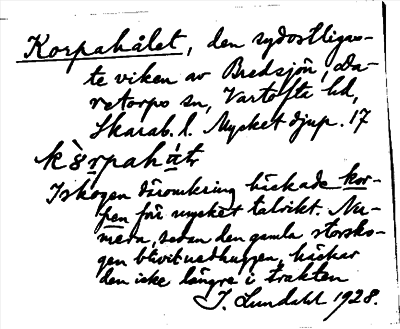 Korpahålet, den sydostligas-
te viken av Bredsjön, Da-
retorps sn, Vartofta hd,
Skarab. l. Mycket djup. 17
kò̀rpahålet
I skogen däromkring häckade kor-
pen förr mycket talrikt. Nu-
mera, sedan den gamla storsko-
gen blivit nedhuggen, häckar
den icke längre i trakten
J. Lundahl 1928.